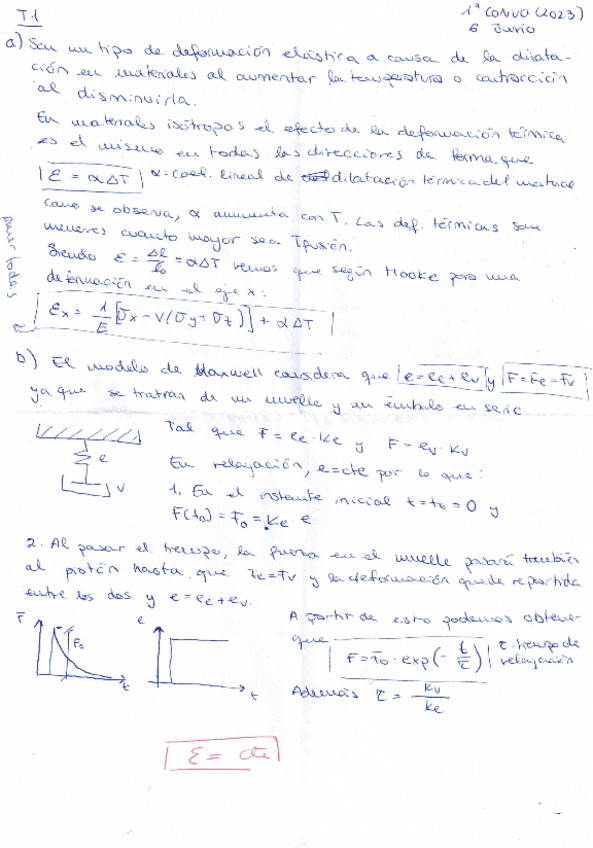 T.1
1ª CONVO (2023)
6 Junio
a) Son un tipo de deformación elástica a causa de la dilata-
ción en materiales al aumentar la temperatura o contracción
al disminuirla.
En materiales isótropos el efecto de la deformación térmica
es el mismo en todas las direcciones de forma que
| ε = α ΔT | α-coef. lineal de dilatación térmica del material
como se observa, α aumenta con T. Las def. térmicas son
menores cuanto mayor sea Tfusión.
Siendo ε = Δl/l₀ = αΔT vemos que según Hooke para una
deformación en el eje x:
poner todas
| εx = 1/E [σx - ν(σy + σz)] + α ΔT |
b) El modelo de Maxwell considera que |e = ee + ev| y |F = Fe = Fv|
ya que se tratran de un muelle y un émbolo en serie
Tal que F = ee · ke y F = ev · kv
En relajación, e = cte por lo que:
1. En el instante inicial t = t₀ = 0 y
F(t₀) = F₀ = ke e
e
v
2. Al pasar el tiempo, la fuerza en el muelle pasará también
al pistón hasta que Fe = Fv y la deformación quede repartida
entre los dos y e = ee + ev.
F
F₀
t
e
t
A partir de esto podemos obtener
que | F = F₀ · exp(- t/τ) | τ · tiempo de
relajación
Además τ = kv/ke
ε = cte